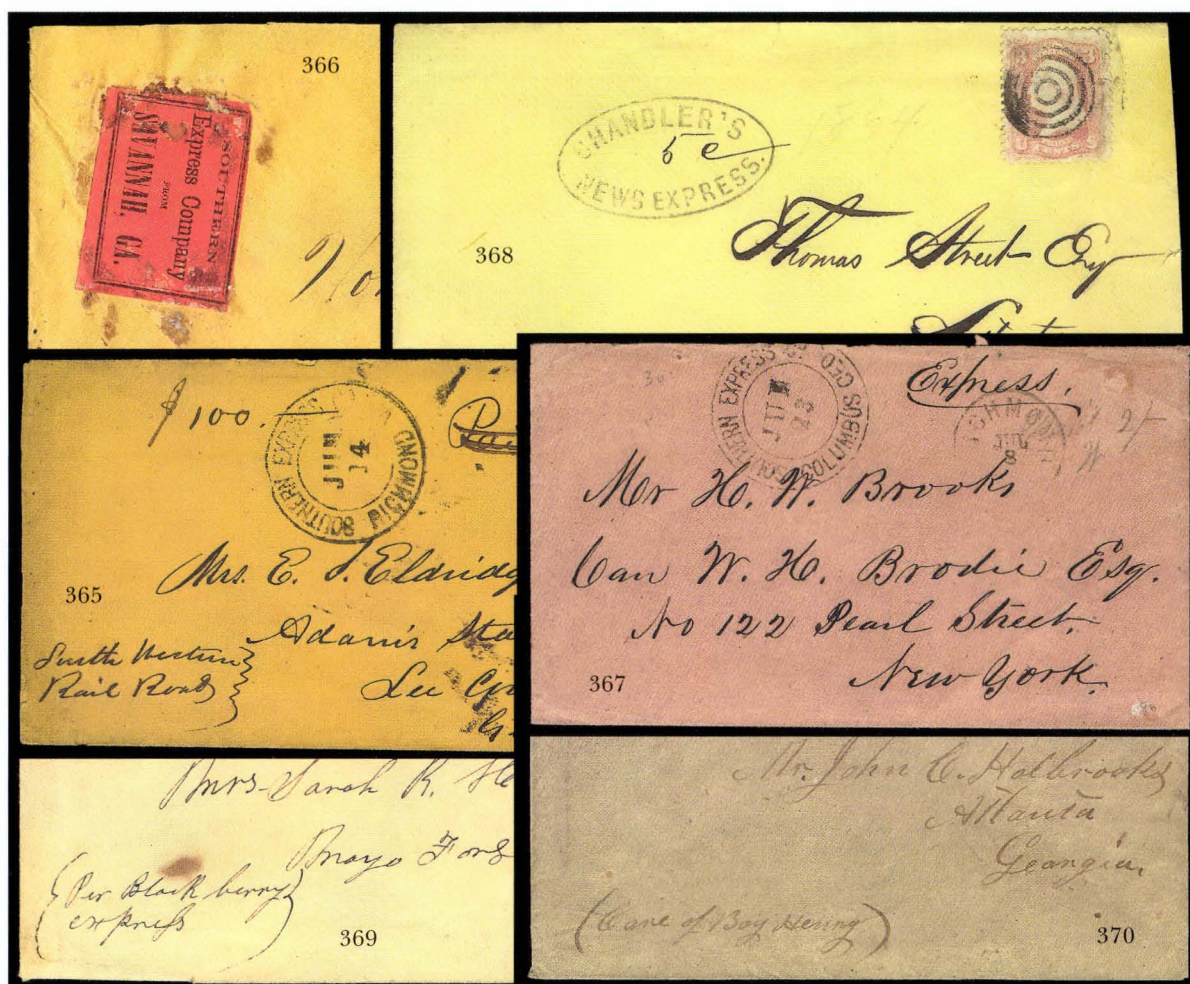 366
SOUTHERN
Express Company
FROM
SAVANNAH, GA.
CHANDLER'S
5c
NEWS EXPRESS.
CENTS
368
Thomas Street Esq
365
$100.
SOUTHERN EXPRESS
RICHMOND
JUN
14
Mrs. E. S. Eldridg
Adams Sta
Lee
South Western
Rail Road
Express.
SOUTHERN EXPRESS
COLUMBUS GEO.
JUN
23
RICHMOND
JUL
8
Mr H. W. Brooks
Care W. H. Brodie Esq.
No 122 Pearl Street.
New York.
367
Mrs Sarah R. He
Mayo Ford
(Per Black berry
express)
369
Mr. John C. Holbrooks
Atlanta
Georgia.
(Care of Boy Henry)
370